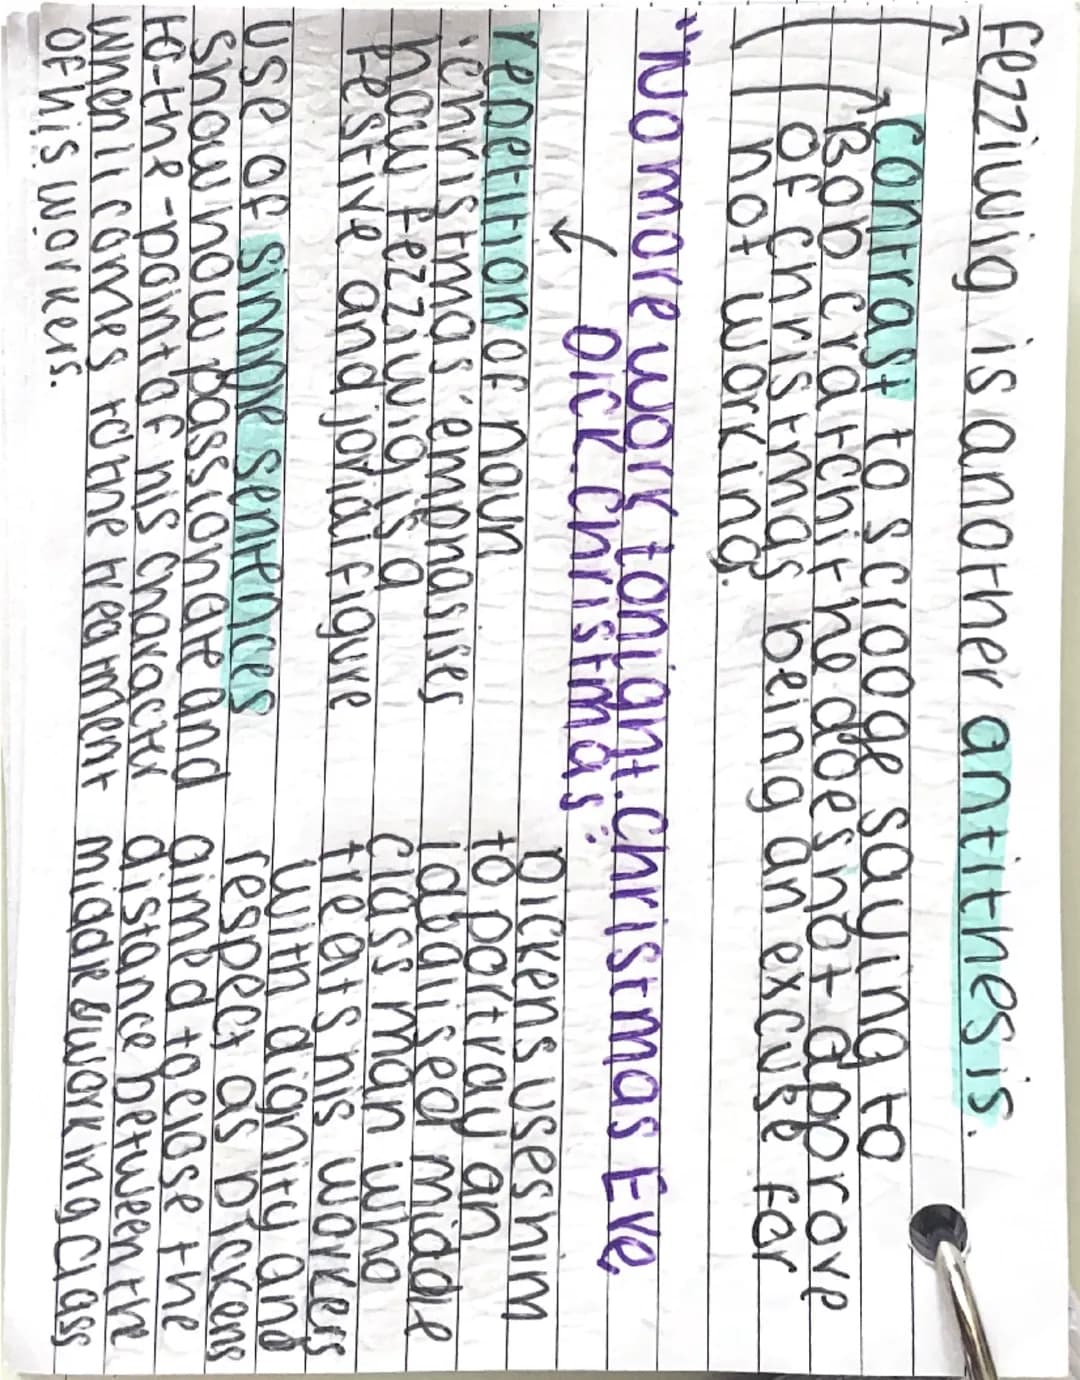 fezziwig is another antithesis.
contrast to scrooge saying to
Bob cratchit he does not approve
of christmas being an excuse for
not working.
"No more work tonight. Christmas Eve
Dick. Christmas."
repetition of noun
'christmas' emphasises
how fezziwig is a
festive and jovial figure
use of simple sentences
show how passionate and
to-the-point of his character
when it comes to the treatment
of his workers.
Dickens uses him
to portray an
idealised middle
class man who
treats his workers
with dignity and
respect as Dickens
aimed to close the
distance between the
middle & working class